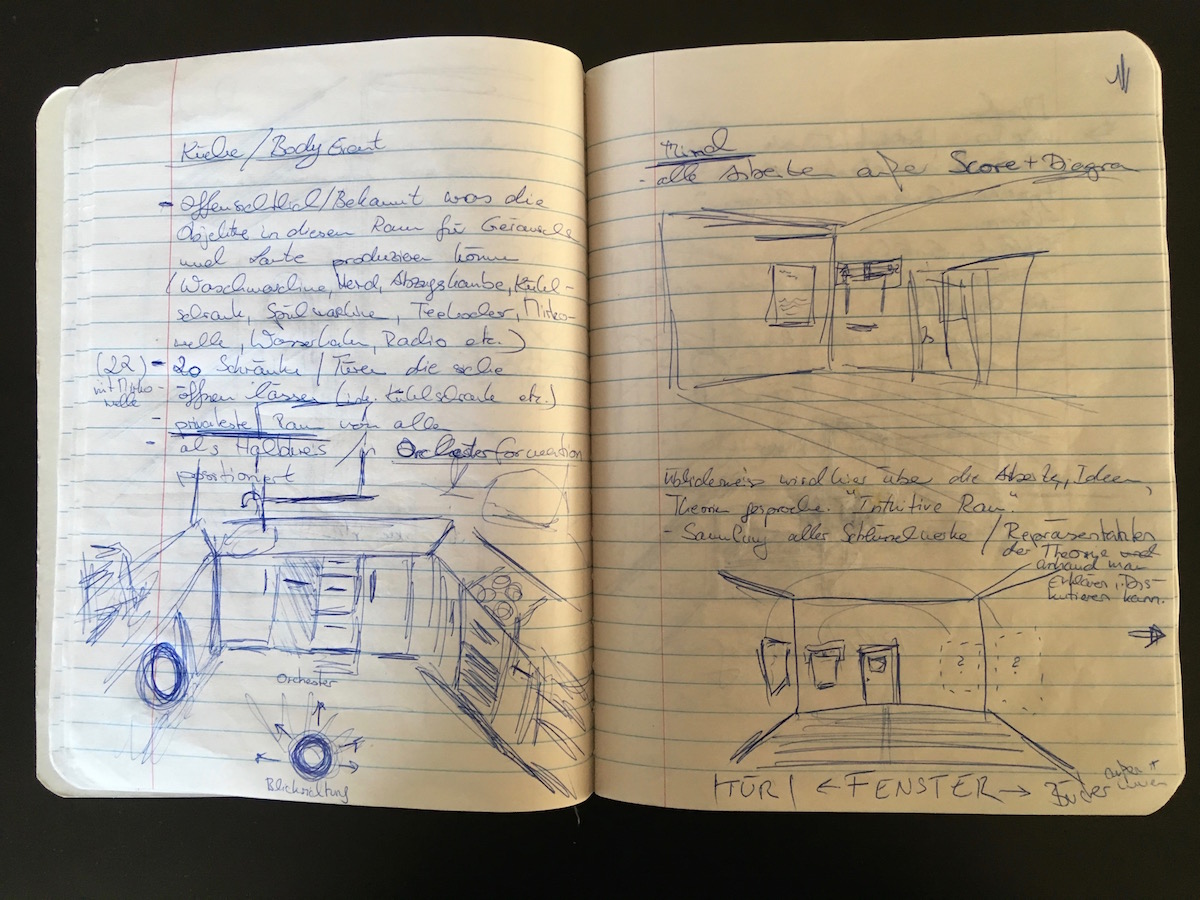 Küche / Body Event
- Offensichtlich / Bekannt was die
Objekte in diesen Raum für Geräusche
und Laute produzieren können
(Waschmaschine, Herd, Abzugshaube, Kühl-
schrank, Spülmaschine, Teekocher, Mikro-
welle, Wasserhahn, Radio etc.)
(22) - 20 Schränke / Türen die sich
mit Mikro-
welle
öffnen lassen (ink. Kühlschrank etc.)
- privateste Raum von alle
- als Halbkreis / in Orchesterformation
positioniert
Orchester
Blickrichtung
Mind
- alle Arbeiten außer Score + Diagram
Üblicherweise wird hier über die Arbeiten, Ideen,
Theorien gesprochen. "Intuitive Raum".
- Sammlung aller Schlüsselwerke / Repräsentanten
der Theorie und
anhand man
erklären, Dis-
kutieren kann.
2 2
|TÜR| ← FENSTER →